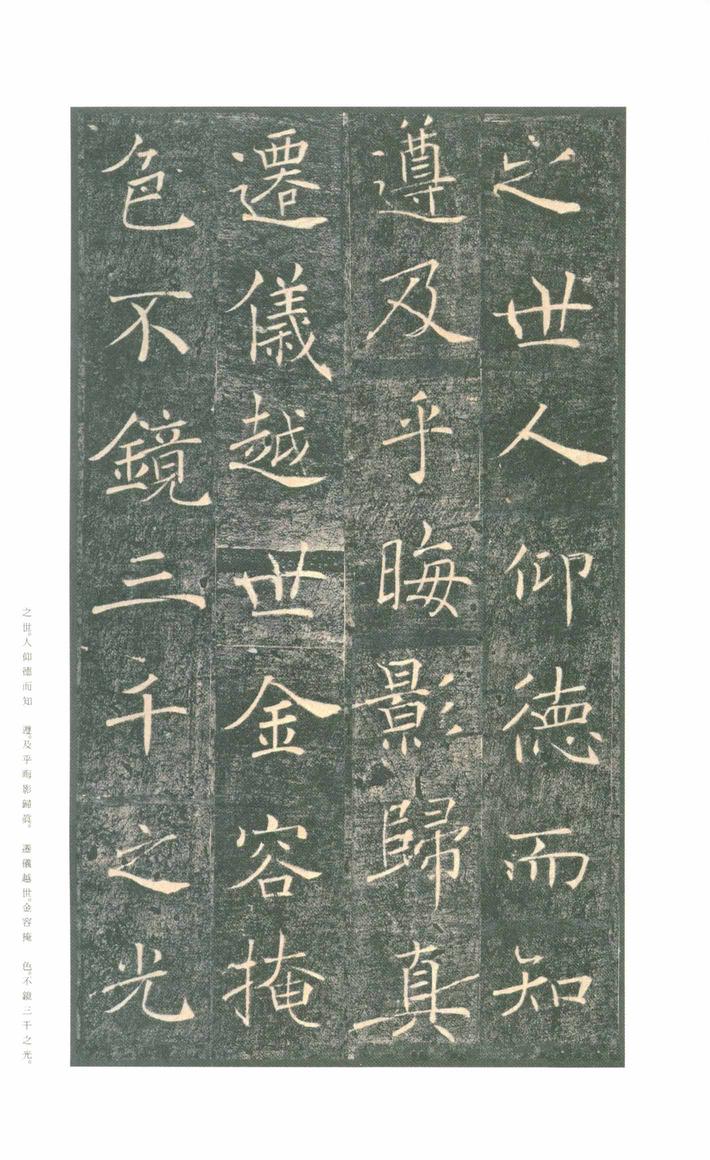 之世人仰德而知
遵及乎晦影歸真
遷儀越世金容掩
色不鏡三千之光
之世。人仰德而知　遵。及乎晦影歸真。　遷儀越世。金容掩　色。不鏡三千之光。